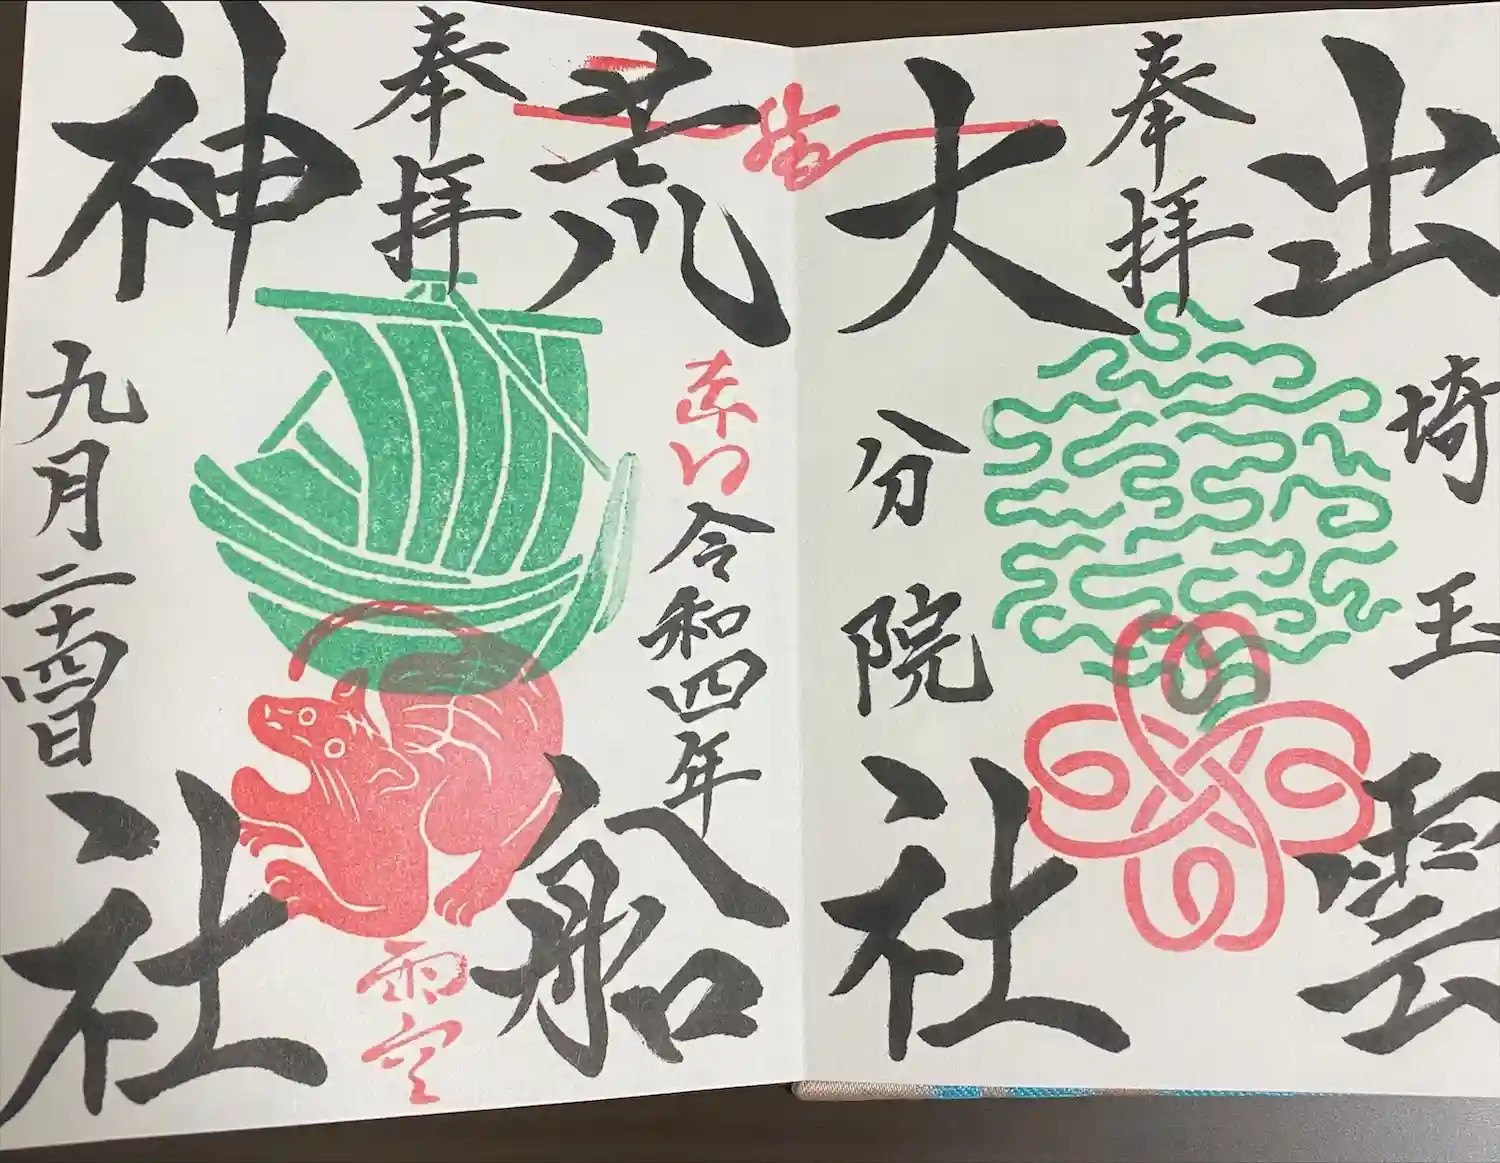 出雲
埼玉
奉拝
大社
分院
荒船
令和四年
奉拝
雨空
神社
九月二十四日